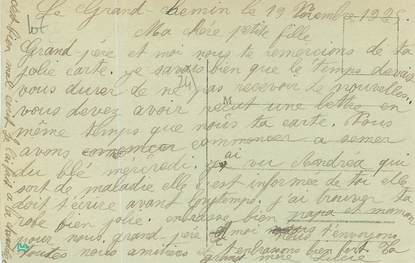 Le Grand chemin le 19 Novembre 1925
Ma chère petite fille
Grand-père et moi nous te remercions de ta
jolie carte. je savais bien que le temps devais
vous durer de ne pas recevoir de nouvelles
vous devez avoir recut une lettre en
même temps que nous ta carte. Nous
avons commencer a semer
du blé mercredi. j'ai vu Andrea qui
sort de maladie elle s'est informée de toi elle
doit t'écrire avant longtemps. j'ai trouver ta
robe bien jolie. embrasse bien papa et maman
pour nous. grand-père et moi nous t'envoyons
toutes nous amitiers t'embrassons bien fort. Ta
grand mère Lucie